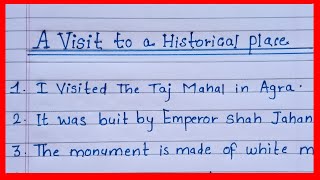 A Visit to a Historical place
1. I Visited The Taj Mahal in Agra.
2. It was buit by Emperor Shah Jahan
3. The monument is made of white m